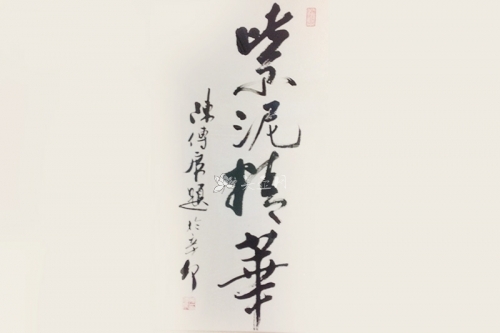 紫泥精華
陳傳席題於辛卯